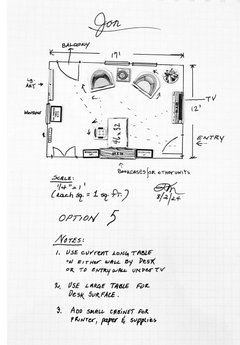 Jon
BALCONY
17'
LG.
ART
WINDOW
TV
12'
ENTRY
46x32
BOOKCASES/OR OTHER UNITS
SCALE:
1/4" = 1'
(each sq = 1 sq ft.)
8/2/24
OPTION 5
NOTES:
1. USE CURRENT LONG TABLE
ON EITHER WALL BY DESK
OR TO ENTRY WALL UNDER TV
2. USE LARGE TABLE FOR
DESK SURFACE.
3. ADD SMALL CABINET FOR
PRINTER, PAPER & SUPPLIES